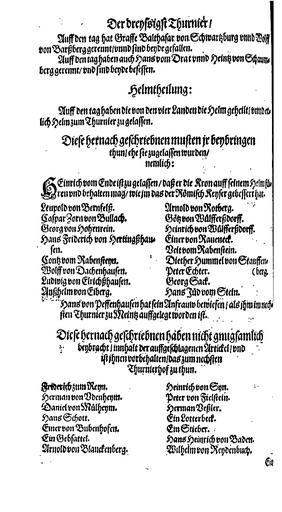 Der dreyssigst Thurnier/
Auff den tag hat Graffe Balthasar von Schwartzburg vnnd Wolff
von Barßberg gerennt/vnnd sind beyde gefallen.
Auff den tag haben auch Hans vom Drat vnnd Heintz von Schaum-
berg gerennt/vnd sind beyde besessen.
Helmtheilung:
Auff den tag haben die von den vier Landen die Helm getheilt/vnd
lich Helm zum Thurnier zu gelassen.
Diese hernach geschriebnen musten jr beybringen
thun/ehe sie zugelassen wurden/
nemlich:
HEinrich vom Ende ist zu gelassen/daß er die Kron auff seinem Helm
ren vnd behalten mag/wie jm das der Römisch Keyser gebessert hat.
Leupold von Bernfelß.
Caspar Zorn von Bullach.
Georg von Hohenrein.
Hans Friderich von Hertingßhau-
sen.
Contz vom Rabensteyn.
Wolff von Dachenhausen.
Ludwig von Elrichßhausen.
Anßhelm von Eiberg.
Arnold von Rotberg.
Götz von Wülfferßdorff.
Heinrich von Wülfferßdorff.
Einer von Raueneck.
Veit vom Rabenstein.
Diether Hummel von Stauffen-
Peter Echter. (berg.
Georg Sack.
Hans Jud vom Stein.
Hans von Peffenhausen hat sein Anfrauw bewiesen/als jhm im nech-
sten Thurnier zu Meintz auffgelegt worden ist.
Diese hernach geschriebnen haben nicht gnugsamlich
beybracht/innhalt der auffgeschlagenen Artickel/vnd
ist jhnen vorbehalten/das zum nechsten
Thurnierhof zu thun.
Friderich zum Reyn.
Herman von Vdenheym.
Daniel von Mülheym.
Hans Schott.
Einer von Bubenhofen.
Ein Gebsattel.
Arnold von Blanckenberg.
Heinrich von Syn.
Peter von Fielstein.
Herman Veßler.
Ein Lotterbeck.
Ein Stieber.
Hans Heinrich von Baden.
Wilhelm von Reydenbuch.